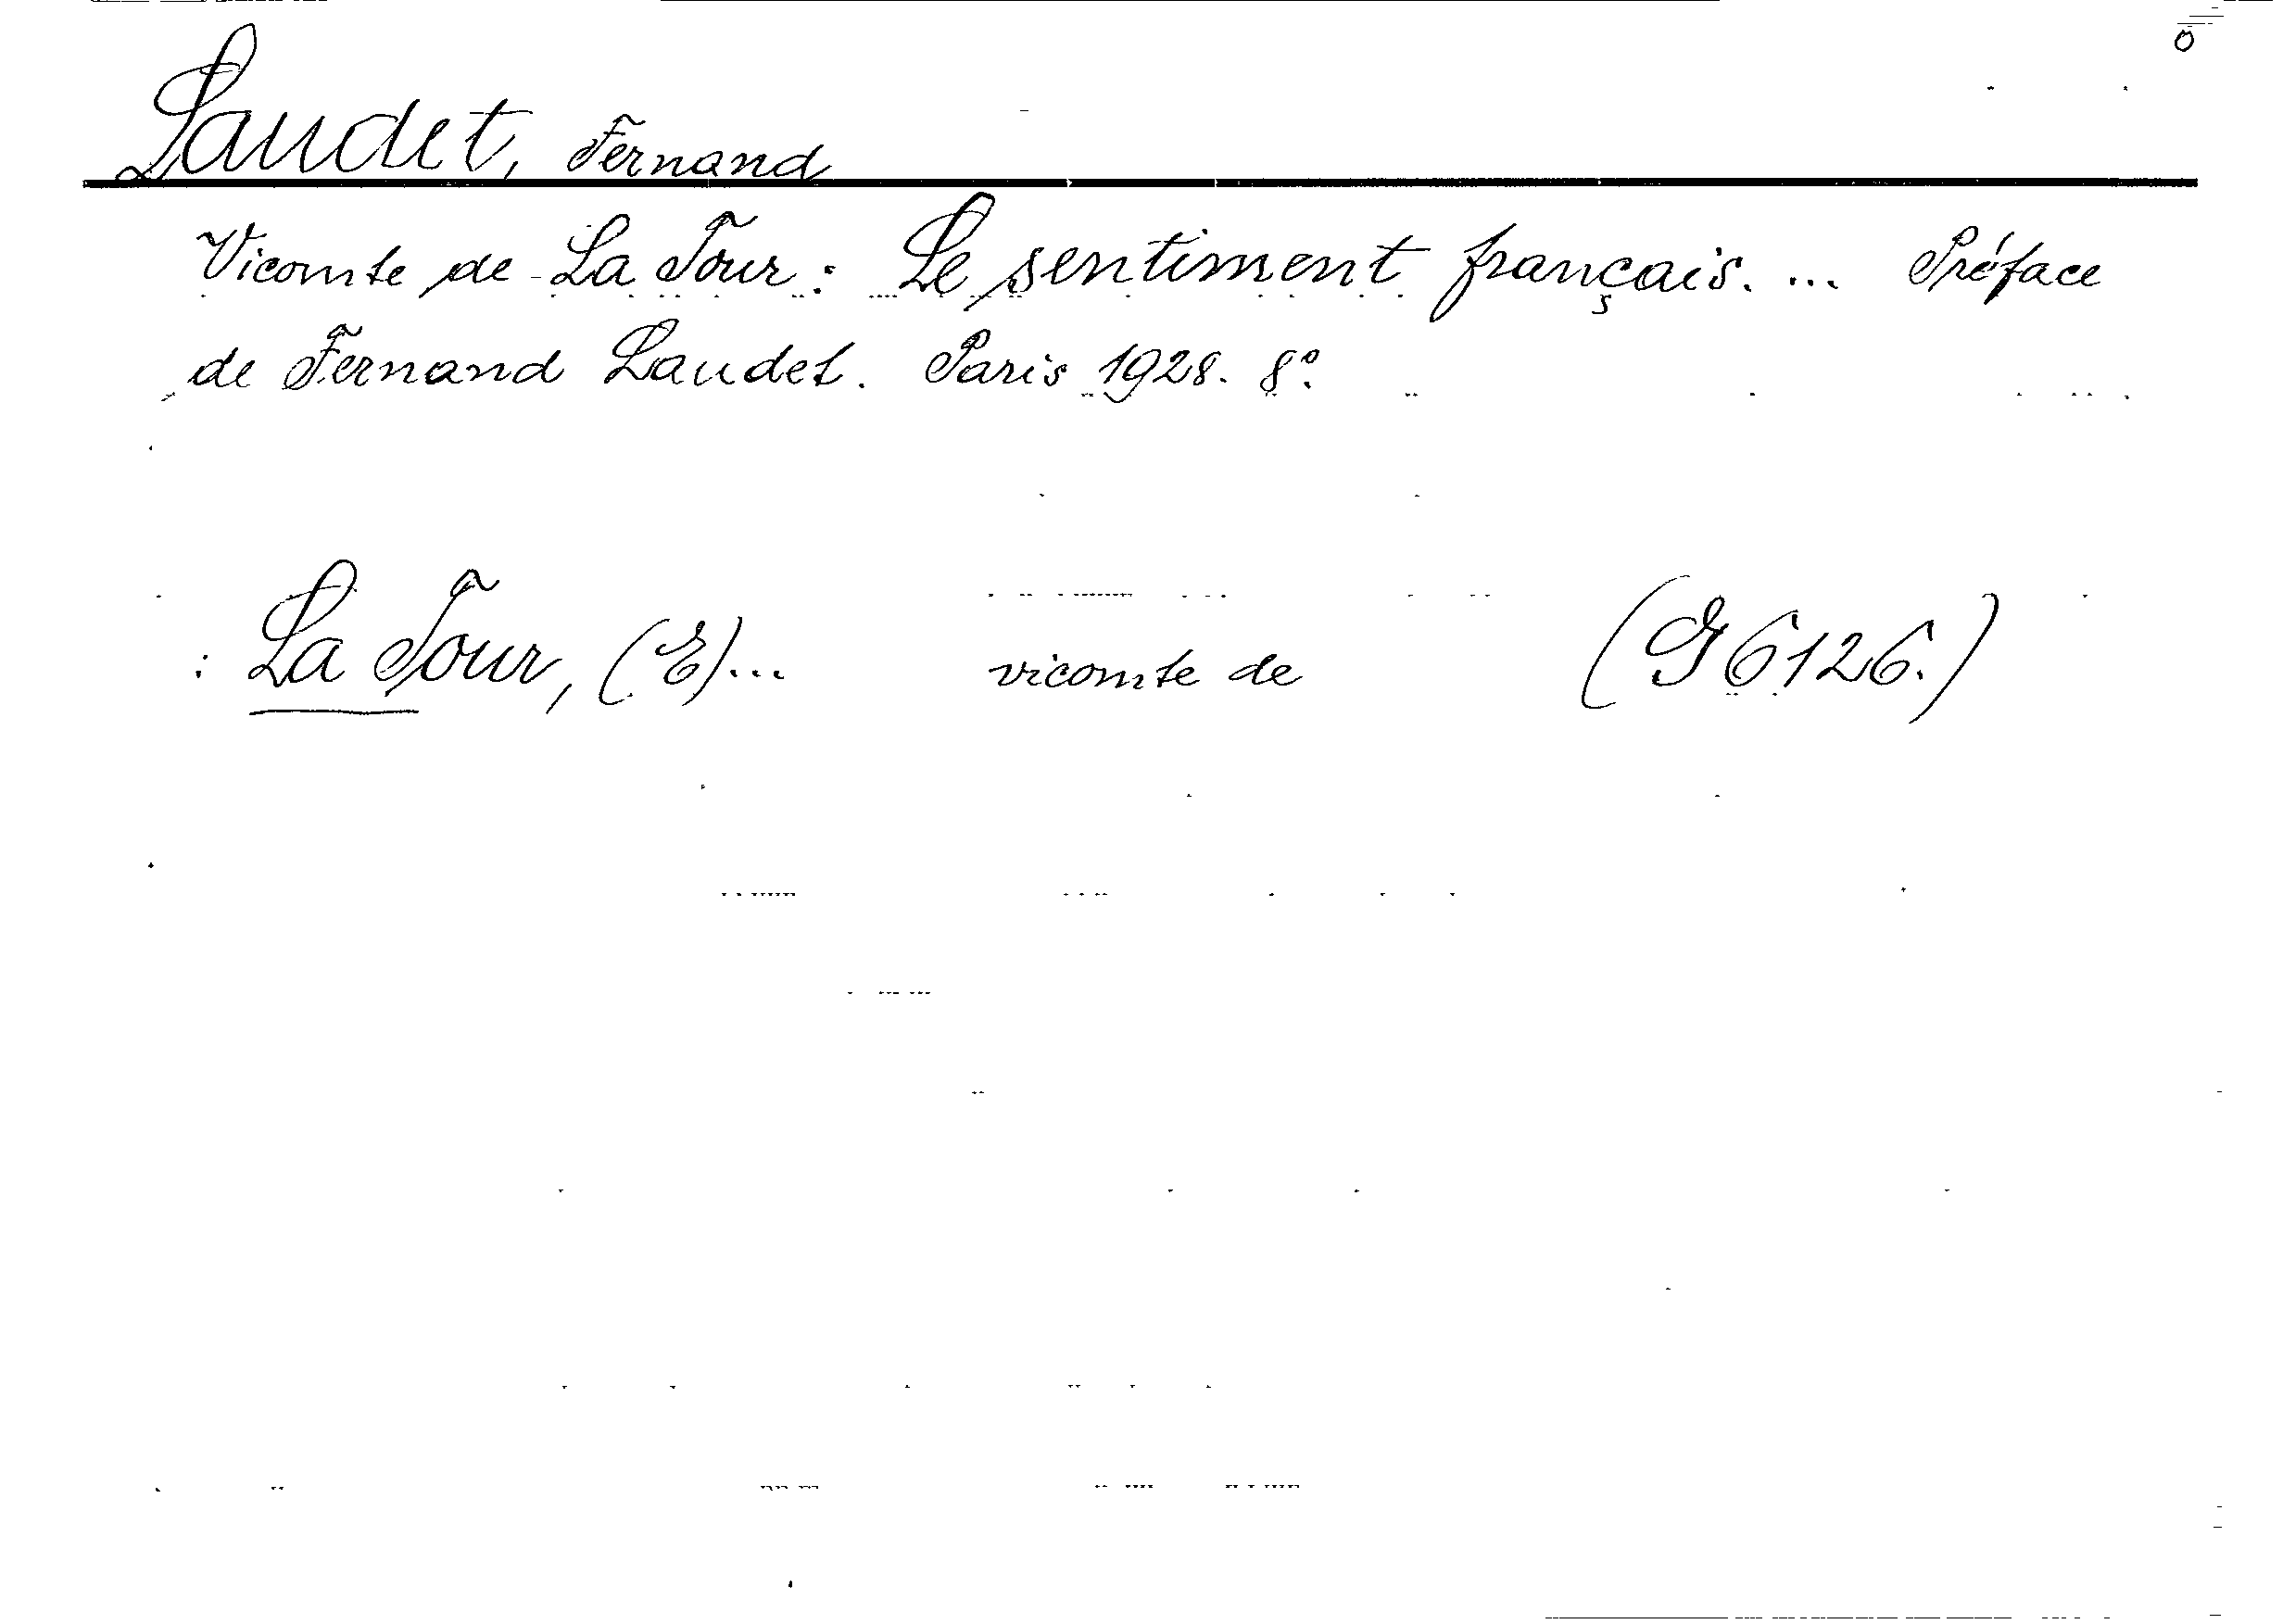 Laudet, Fernand
Vicomte de La Tour: Le sentiment français. ... Préface
de Fernand Laudet. Paris 1928. 8º.
: La Tour, (E)... vicomte de (G 6126.)